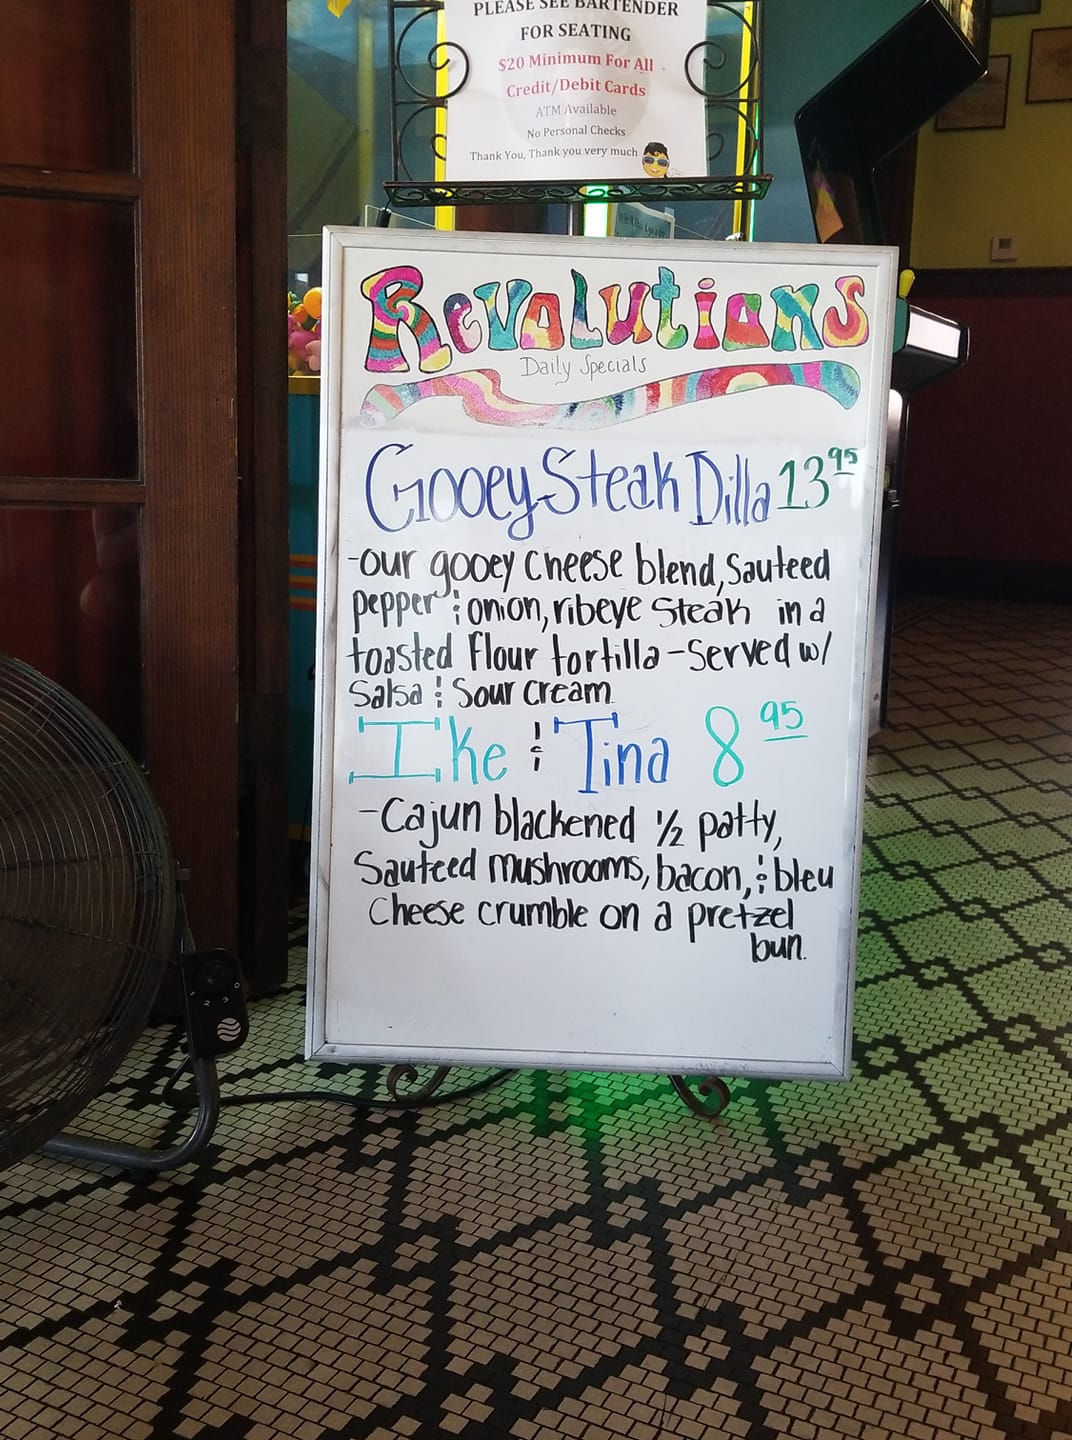 PLEASE SEE BARTENDER
FOR SEATING
$20 Minimum For All
Credit/Debit Cards
ATM Available
No Personal Checks
Thank You, Thank you very much
Revolutions
Daily Specials
Gooey Steak Dilla 13 95
-our gooey cheese blend, Sauteed
pepper & onion, ribeye steak in a
toasted flour tortilla - Served w/
Salsa & Sour cream
Ike & Tina 8 95
- Cajun blackened 1/2 patty,
Sauteed mushrooms, bacon, & bleu
Cheese crumble on a pretzel
bun.
1 2 3 0